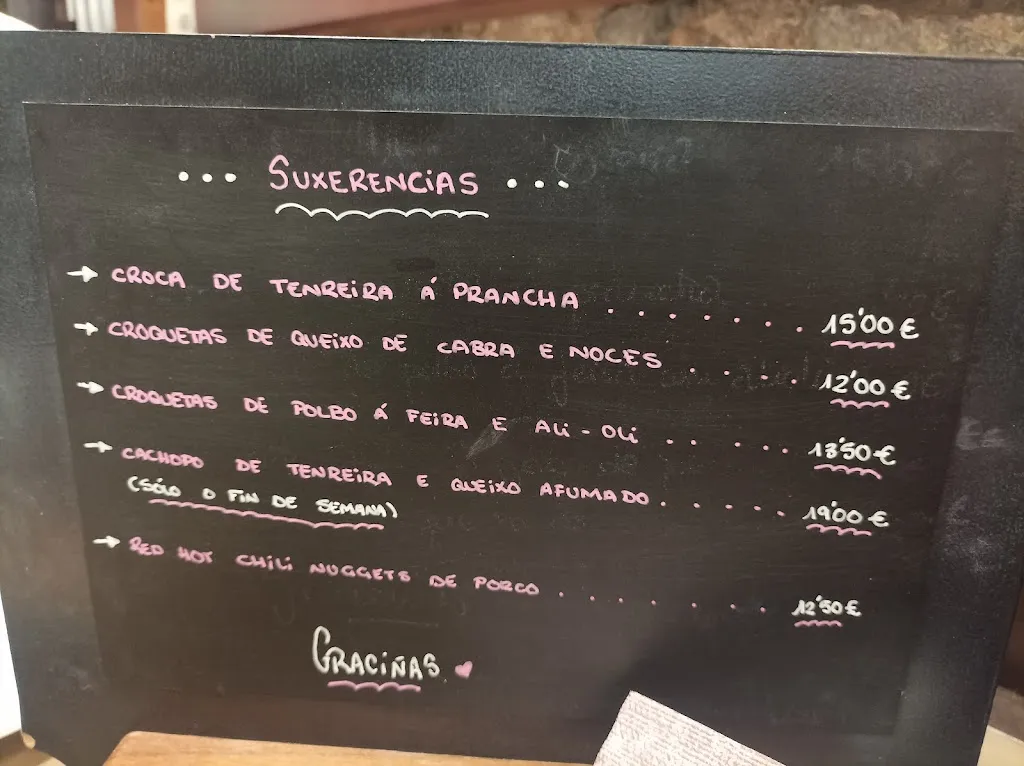 ... SUXERENCIAS ...
→ CROCA DE TENREIRA Á PRANCHA ........ 15'00 €
→ CROQUETAS DE QUEIXO DE CABRA E NOCES ...... 12'00 €
→ CROQUETAS DE POLBO Á FEIRA E ALI-OLI ..... 13'50 €
→ CACHOPO DE TENREIRA E QUEIXO AFUMADO ...... 19'00 €
(SÓLO O FIN DE SEMANA)
→ RED HOT CHILI NUGGETS DE PORCO ......... 12'50 €
GRACIÑAS ♥